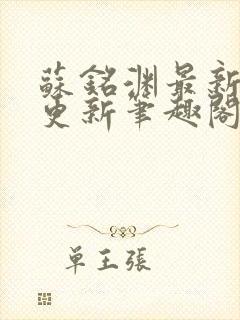 蘇銘淵最新
更新筆趣閣
单王張